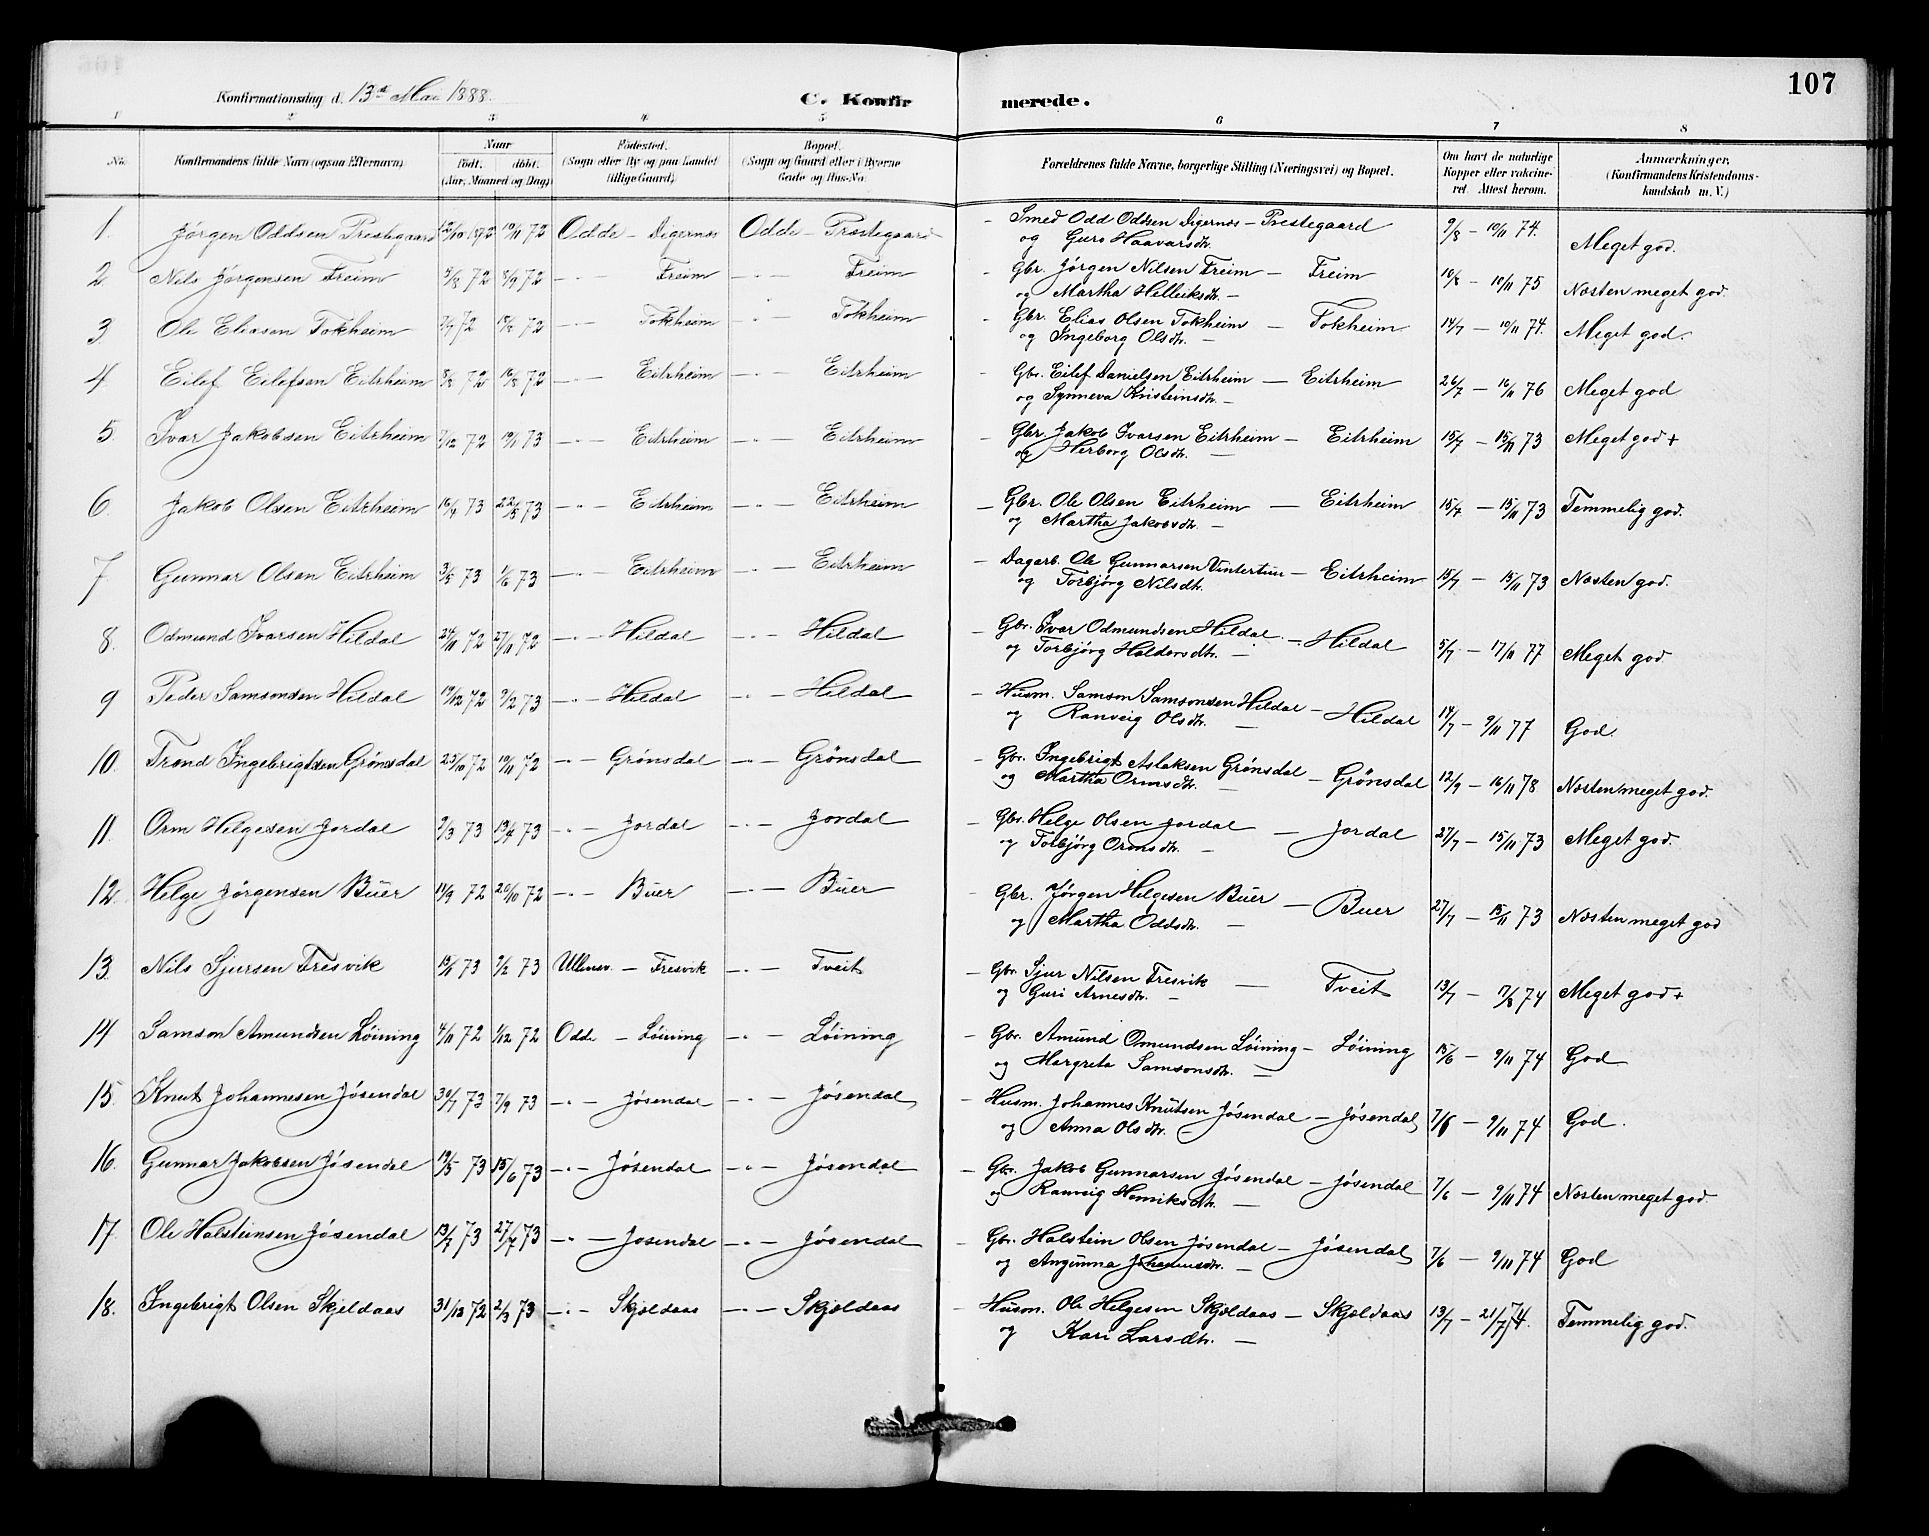 107
Konfirmationsdag d. 13de Mai 1888.
C. Konfir
merede.
1 2 3 4 5 6 7 8
No. Konfirmandens fulde Navn (ogsaa Efternavn). Naar født. døbt. (Aar, Maaned og Dag) Fødested. (Sogn eller By og paa Landet tillige Gaard). Bopæl. (Sogn og Gaard eller i Byerne Gade og Hus-No. Forældrenes fulde Navne, borgerlige Stilling (Næringsvei) og Bopæl. Om havt de naturlige Kopper eller vakcineret. Attest herom. Anmærkninger, (Konfirmandens Kristendomskundskab m. V.)
1. Jørgen Oddsen Prestegaard 72 72 Odde - Digernæs Odde - Præstegaard - Smed Odd Oddsen Digernæs - Prestegaard 9/8 - 10/11 74. Meget god.
og Guro Haavarsdtr.
2. Nils Jørgensen Freim 5/8 72 8/9 72 -"- Freim -"- Freim - Gbr. Jørgen Nilsen Freim - Freim 10/8 - 10/11 75 Næsten meget god.
og Martha Helleiksdtr. -
3 Ole Eliasen Tokheim 72 72 Tokheim " Tokheim - Gbr. Elias Olsen Tokheim - Tokheim 14/7 - 10/11 74. Meget god.
og Ingeborg Olsdtr. -
4 Eilef Eilefsen Eitrheim 72 72 -"- Eitrheim -"- Eitrheim - Gbr. Eilef Danielsen Eitrheim - Eitrheim 26/7 - 16/11 76 Meget god
og Synneva Kristensdtr. -
5. Ivar Jakobsen Eitrheim 7/12 72 73 -"- Eitrheim -"- Eitrheim - Gbr. Jakob Ivarsen Eitrheim - Eitrheim 15/7 - 15/11 73 Meget god +
og Herborg Olsdtr. -
6. Jakob Olsen Eitrheim 16/4 73 22/5 73 -"- Eitrheim -"- Eitrheim - Gbr. Ole Olsen Eitrheim - Eitrheim 15/7 - 15/11 73 Temmelig god.
og Martha Jakobsdtr. -
7. Gunnar Olsen Eitrheim 3/5 73 1/6 73 -"- Eitrheim -"- Eitrheim - Dagarb. Ole Gunnarsen Vintertun - Eitrheim 15/7 - 15/11 73 Næsten god.
og Torbjørg Nilsdtr.
8. Odmund Ivarsen Hildal 24/11 72 27/11 72 -"- Hildal -"- Hildal - Gbr. Ivar Odmundsen Hildal - Hildal 5/7 - 17/11 77 Meget god
og Torbjørg Haldorsdtr. -
9 Peder Samsonsen Hildal 19/12 72 9/2 73 -"- Hildal -"- Hildal - Husm. Samson Samsonsen Hildal - Hildal 14/7 - 9/11 77 God.
og Ranveig Olsdtr. -
10. Trond Ingebrigtsen Grønsdal 25/10 72 10/11 72 -"- Grønsdal -"- Grønsdal - Gbr. Ingebrigt Aslaksen Grønsdal - Grønsdal 12/9 - 16/11 78 Næsten meget god.
og Martha Ormsdtr. -
11. Orm Helgesen Jordal 9/3 73 13/4 73 -"- Jordal -"- Jordal - Gbr. Helge Olsen Jordal - Jordal 27/7 - 15/11 73 Meget god.
og Torbjørg Ormsdtr. -
12. Helge Jørgensen Buer 72 20/10 72 -"- Buer -"- Buer - Gbr. Jørgen Helgesen Buer - Buer 27/7 - 15/11 73 Næsten meget god
og Martha Oddsdtr. -
13. Nils Sjursen Fresvik 73 9/2 73 Ullensv. - Fresvik -"- Tveit - Gbr. Sjur Nilsen Fresvik - Tveit 13/7 - 74 Meget god +
og Guri Arnesdtr. -
14 Samson Amundsen Løining 4/11 72 1/12 72 Odde - Løining -"- Løining - Gbr. Amund Omundsen Løining - Løining 15/6 - 9/11 74 God
og Margreta Samsonsdtr. -
15. Knut Johannesen Jøsendal 30/7 73 7/9 73 -"- Jøsendal -"- Jøsendal - Husm. Johannes Knutsen Jøsendal - Jøsendal 7/6 - 9/11 74 God.
og Anna Olsdtr.
16. Gunnar Jakobsen Jøsendal 73 15/6 73 -"- Jøsendal -"- Jøsendal - Gbr. Jakob Gunnarsen Jøsendal - Jøsendal 7/6 - 9/11 74 Næsten meget god.
og Ranveig Henriksdtr. -
17. Ole Halsteinsen Jøsendal 13/7 73 27/7 73 -"- Josendal -"- Jøsendal - Gbr. Halstein Olsen Jøsendal - Jøsendal 7/6 - 9/11 74 God
og Angunna Johannesdtr. -
18. Ingebrigt Olsen Skjeldaas 31/12 72 2/3 73 -"- Skjældaas -"- Skjældaas - Husm. Ole Helgesen Skjældaas - Skjældaas 13/7 - 21/7 74. Temmelig god.
og Kari Larsdtr. -